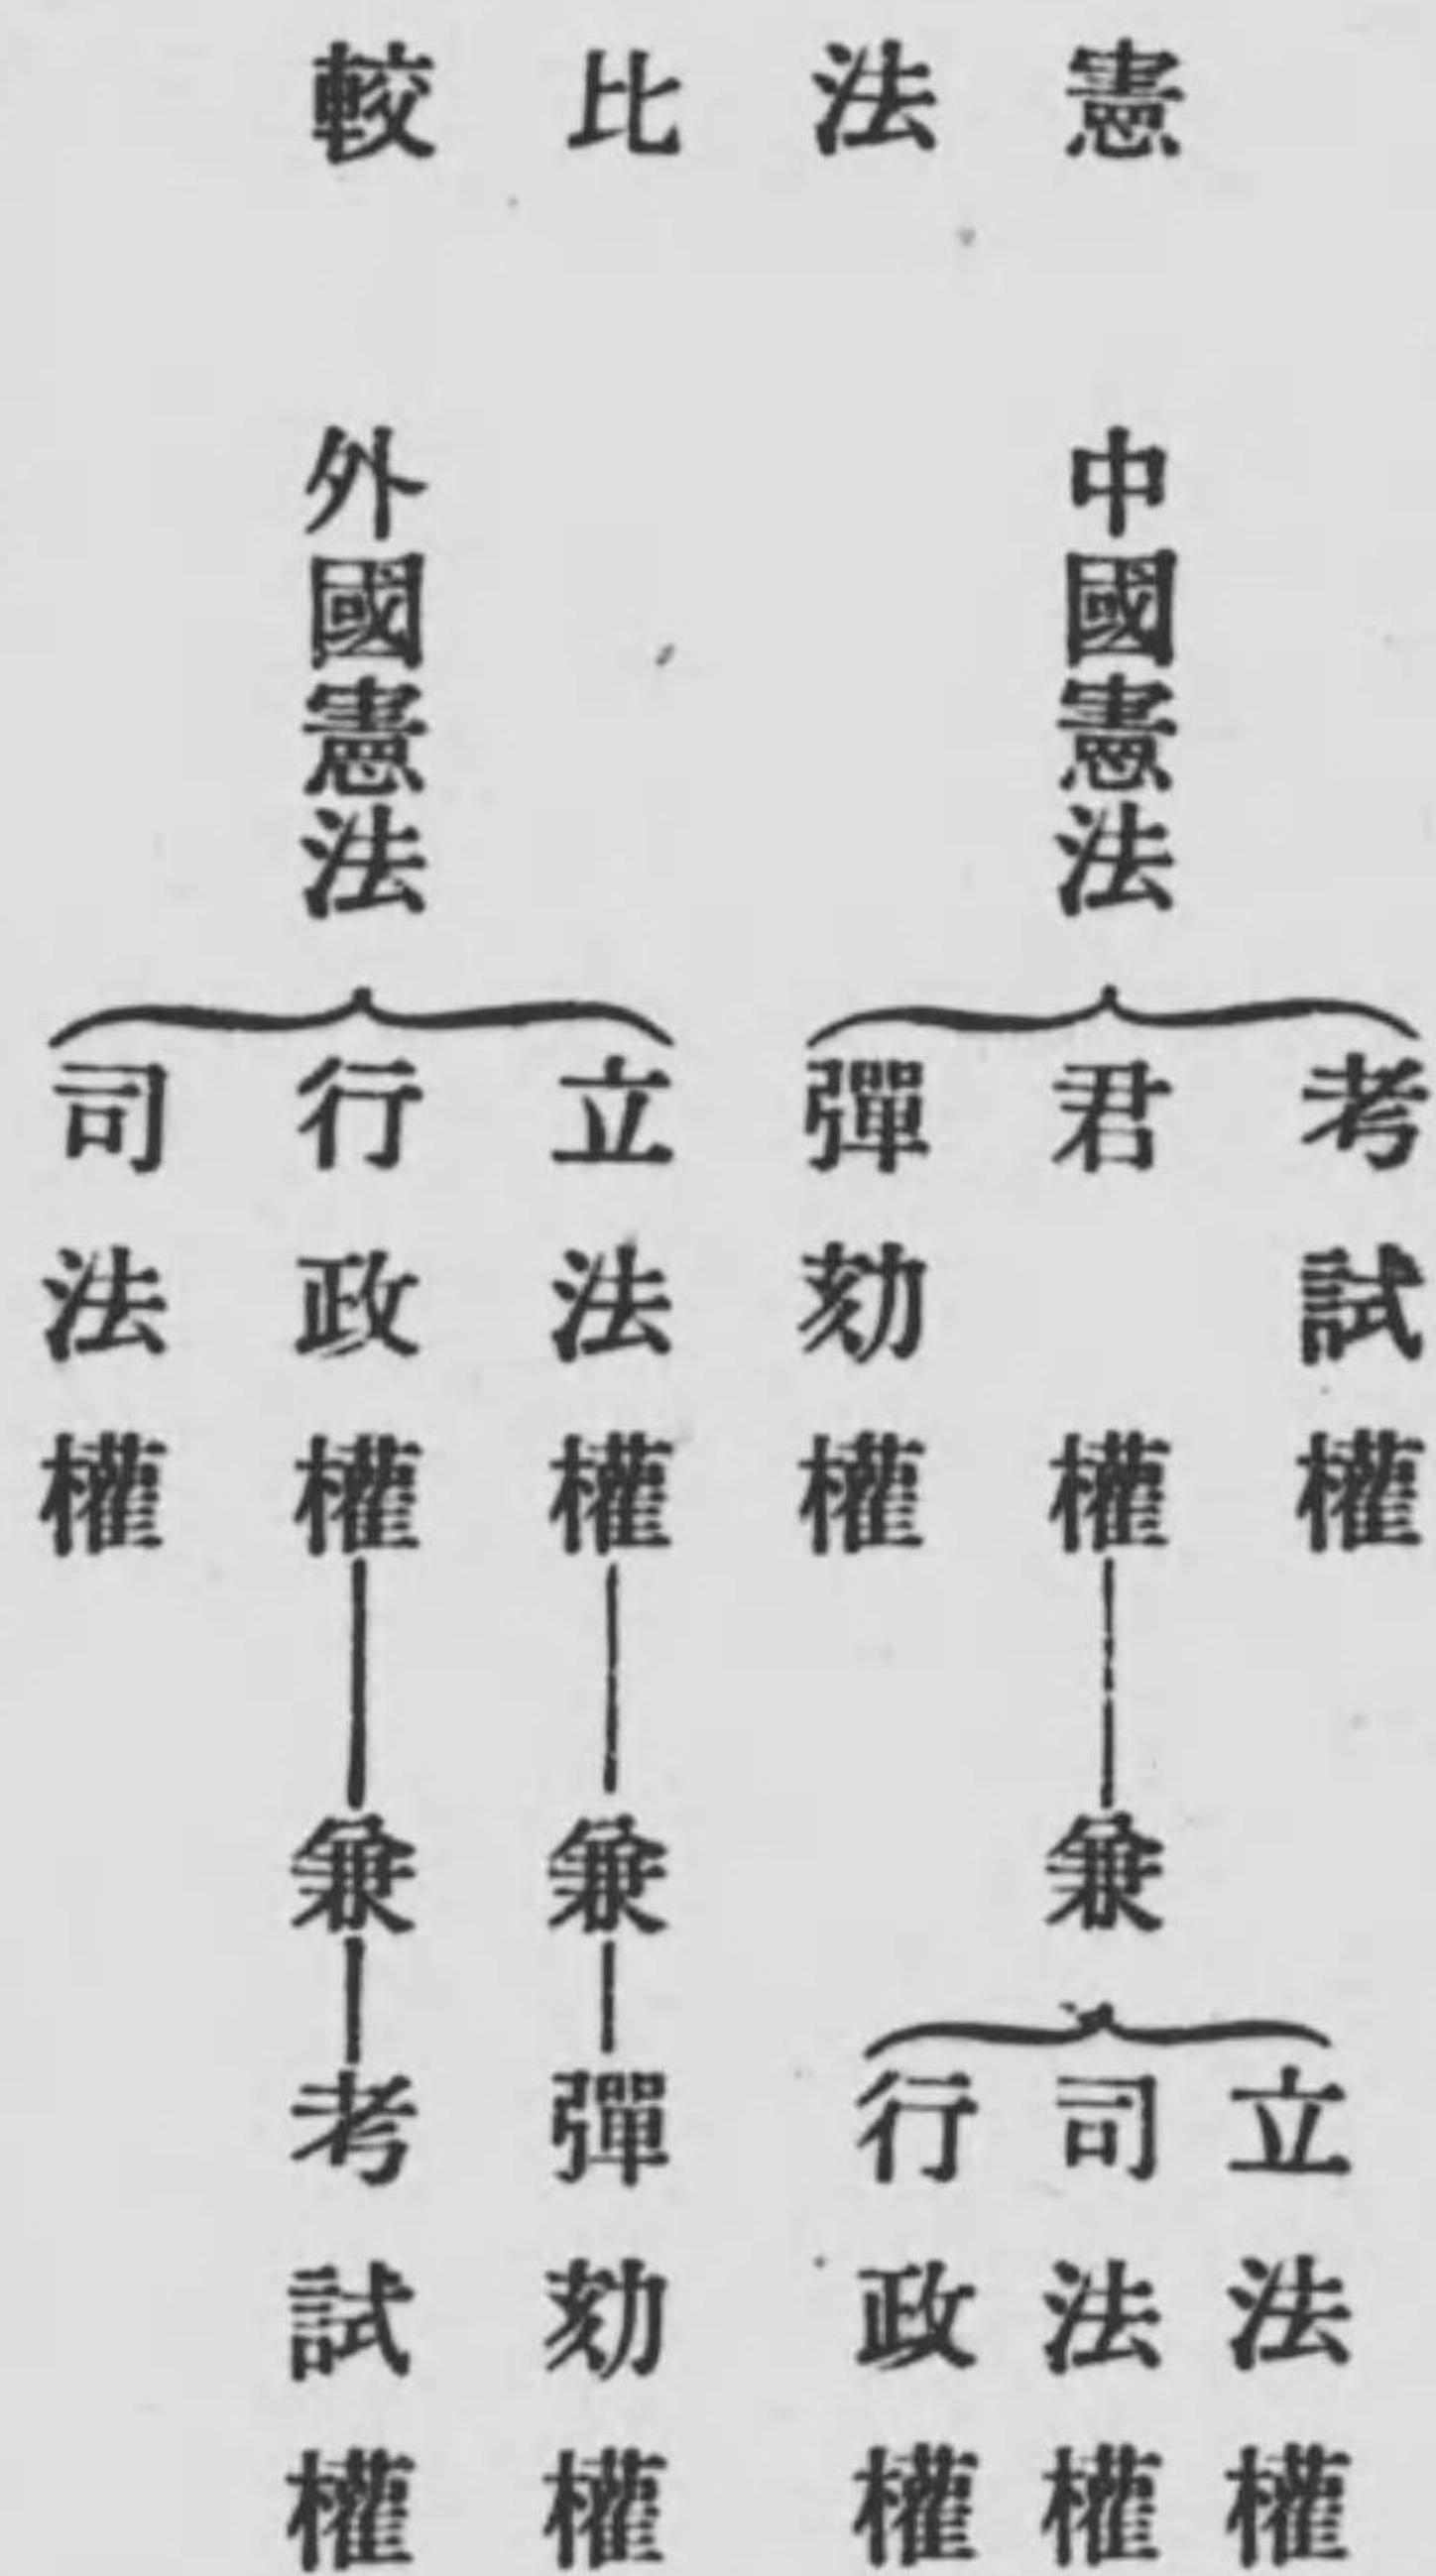 憲法比較
中國憲法
考試權
君權
兼
立法權
司法權
行政權
彈劾權
外國憲法
立法權
兼
彈劾權
行政權
兼
考試權
司法權